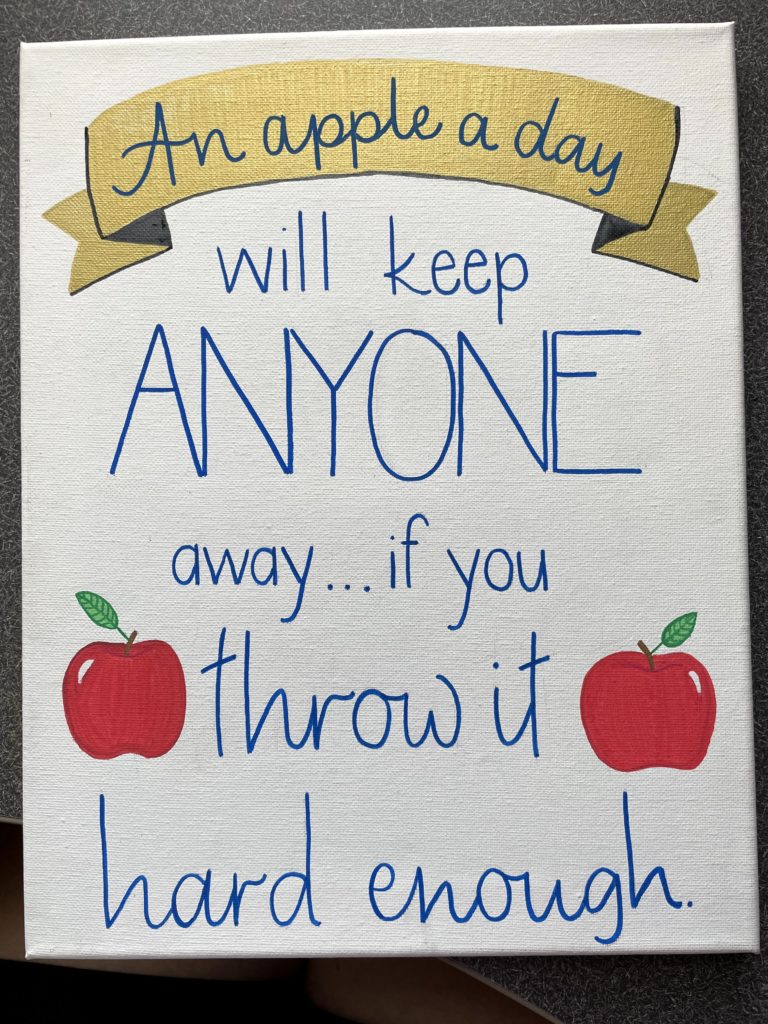 An apple a day
will keep
ANYONE
away...if you
throw it
hard enough.